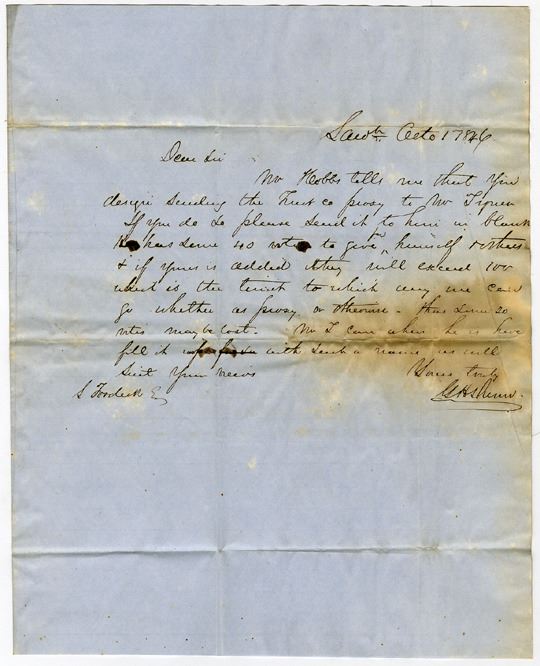 Dear Sir
Mr Hobbs tells me that you
design sending the Trust co proxy to Mr
If you do so please send it to him in blank
He has some 40 votes to give himself & others
& if yours is added they will exceed 100
what is the limit to which any one can
go whether as proxy or otherwise - thus some 20
votes may be lost - Mr T can when he is here
fill it with such a name as will
suit your views
Yours truly